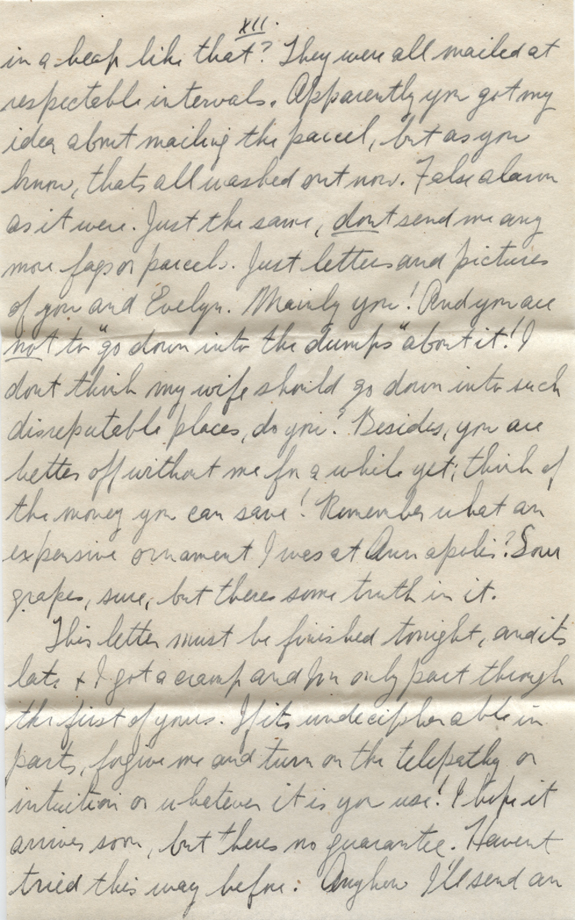 XII.
in a heap like that? They were all mailed at
respectable intervals. Apparently you got my
idea about mailing the parcel, but as you
know, thats all washed out now. False alarm
as it were. Just the same, dont send me any
more fags or parcels. Just letters and pictures
of you and Evelyn. Mainly you! And you are
not to "go down into the dumps" about it! I
dont think my wife should go down into such
disreputable places, do you? Besides, you are
better off without me for a while yet; think of
the money you can save! Remember what an
expensive ornament I was at Annapolis? Sour
grapes, sure, but theres some truth in it.
This letter must be finished tonight, and its
late & I got a cramp and Im only part through
the first of yours. If its undecipherable in
parts, forgive me and turn on the telepathy or
intuition or whatever it is you use! I hope it
arrives soon, but theres no guarantee. Havent
tried this way before. Anyhow I'll send an